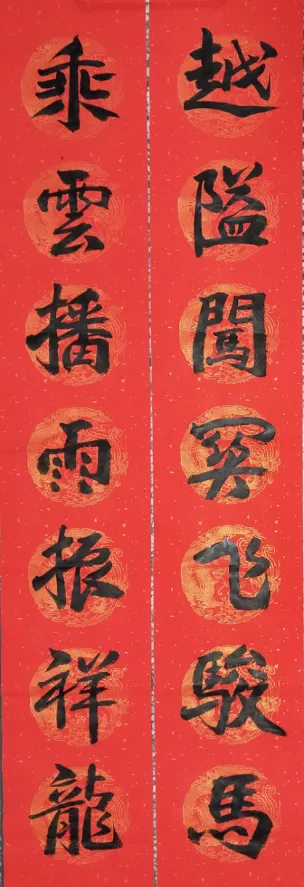 越隘闖関飞駿馬
乘雲播雨振祥龍